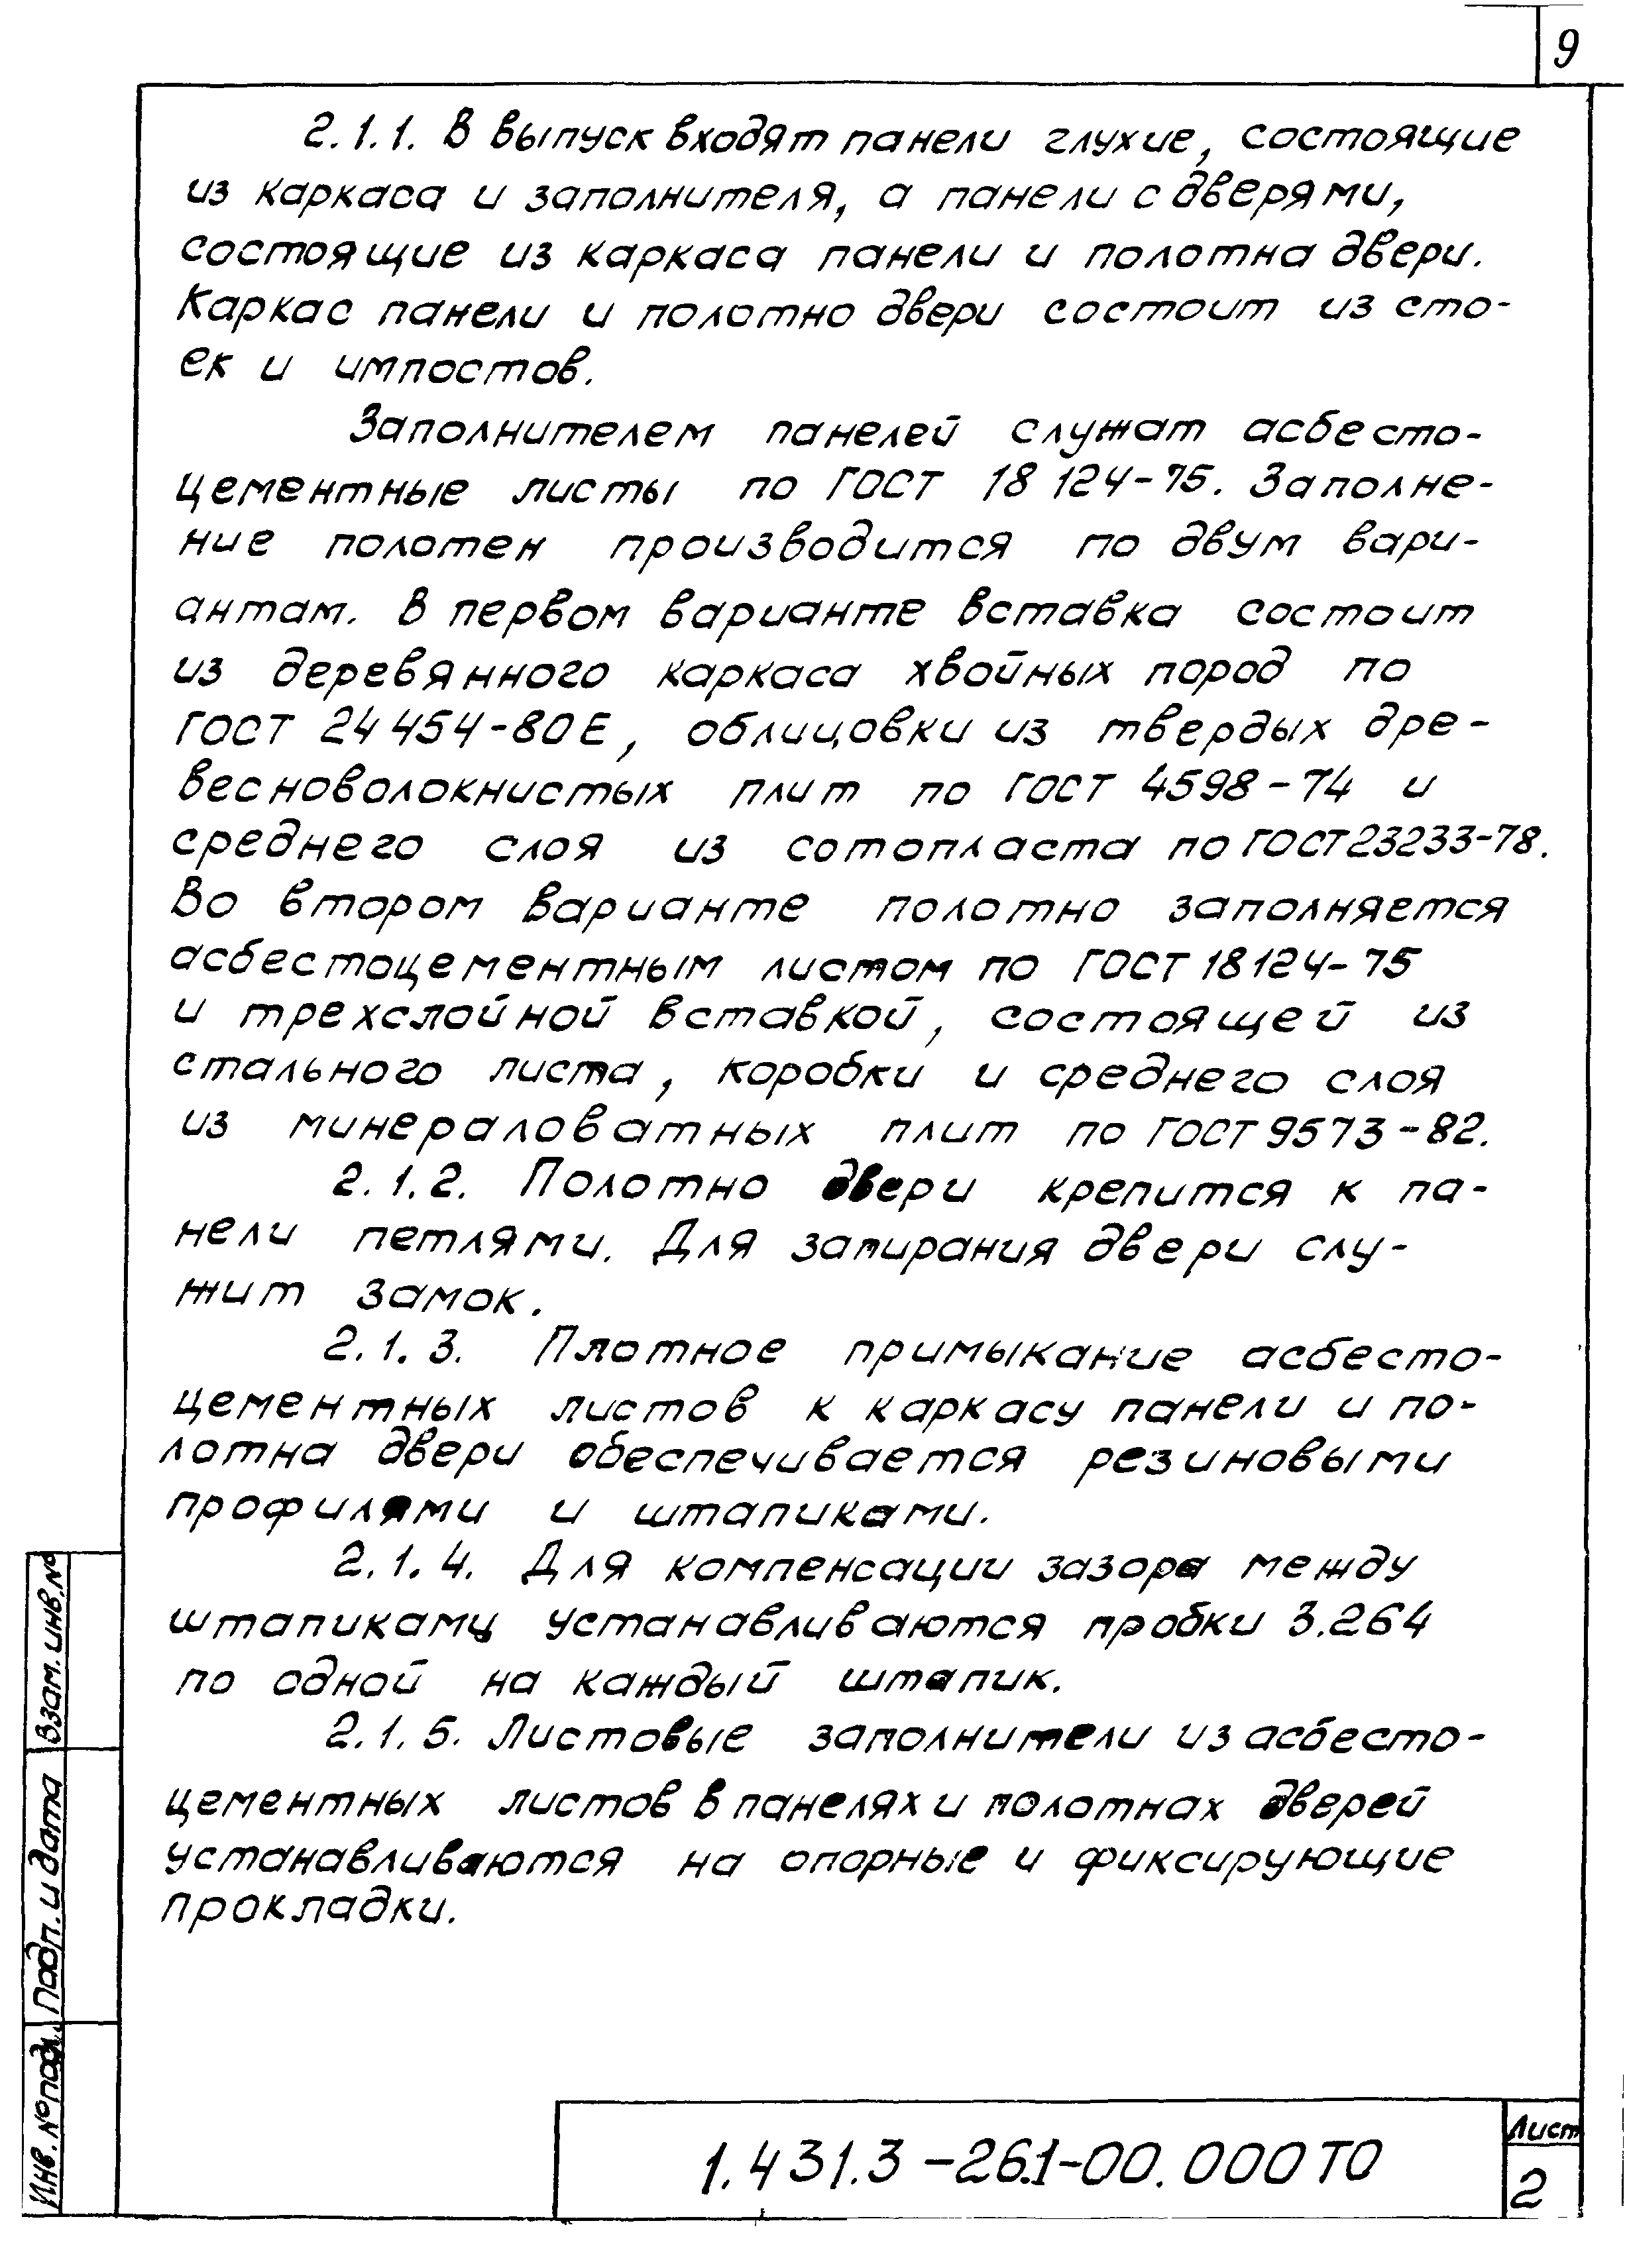 9
2.1.1. В выпуск входят панели глухие, состоящие
из каркаса и заполнителя, а панели с дверями,
состоящие из каркаса панели и полотна двери.
Каркас панели и полотно двери состоит из сто-
ек и импостов.
Заполнителем панелей служат асбесто-
цементные листы по ГОСТ 18 124-75. Заполне-
ние полотен производится по двум вари-
антам. В первом варианте вставка состоит
из деревянного каркаса хвойных пород по
ГОСТ 24 454-80Е, облицовки из твердых дре-
весноволокнистых плит по ГОСТ 4598-74 и
среднего слоя из сотопласта по ГОСТ 23233-78.
Во втором варианте полотно заполняется
асбестоцементным листом по ГОСТ 18124-75
и трехслойной вставкой, состоящей из
стального листа, коробки и среднего слоя
из минераловатных плит по ГОСТ 9573-82.
2.1.2. Полотно двери крепится к па-
нели петлями. Для запирания двери слу-
жит замок.
2.1.3. Плотное примыкание асбесто-
цементных листов к каркасу панели и по-
лотна двери обеспечивается резиновыми
профилями и штапиками.
2.1.4. Для компенсации зазора между
штапиками устанавливаются пробки 3.264
по одной на каждый штапик.
2.1.5. Листовые заполнители из асбесто-
цементных листов в панелях и полотнах дверей
устанавливаются на опорные и фиксирующие
прокладки.
Взам. инв. №
Подп. и дата
Инв. № подл.
1.431.3-26.1-00.000ТО
Лист
2